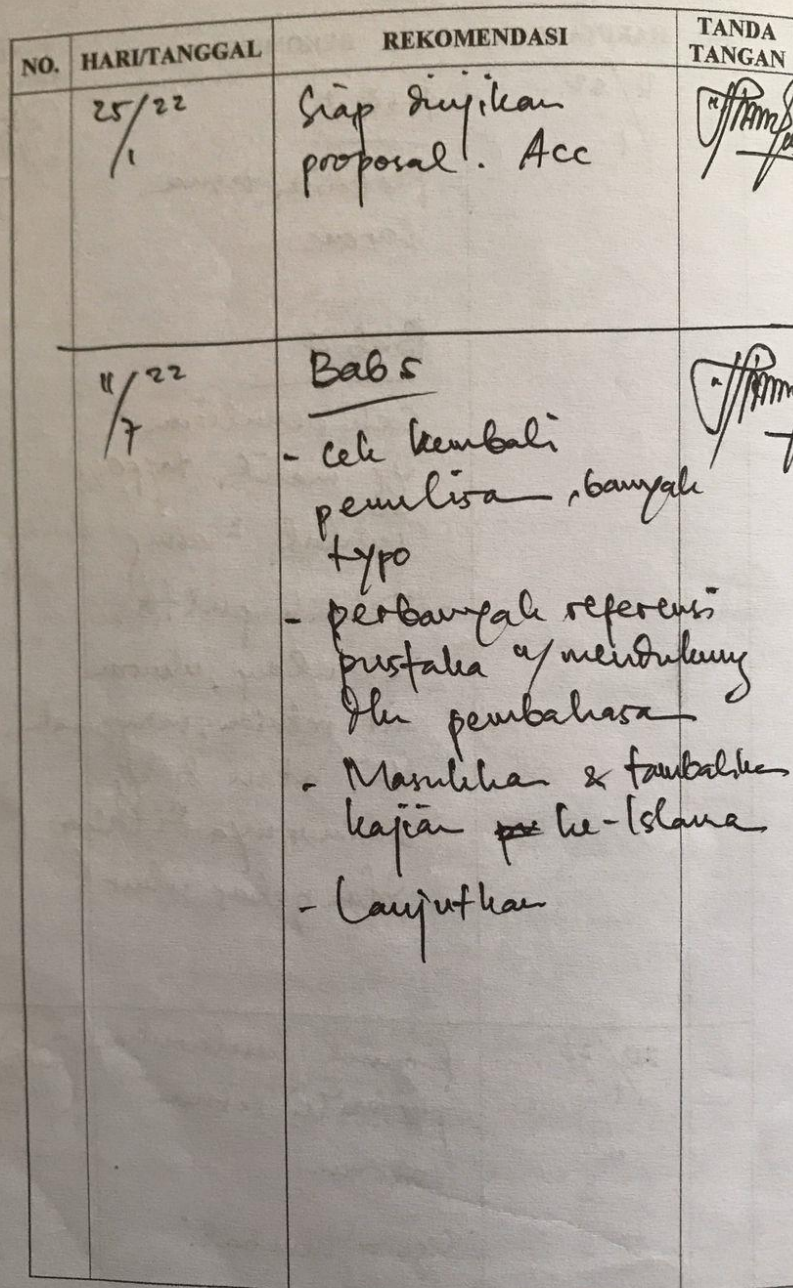 NO. HARI/TANGGAL REKOMENDASI TANDA TANGAN
25/1 22 Siap diujikan
proposal. Acc
11/7 22 Bab 5
- cek kembali
penulisan, banyak
typo
- perbanyak referensi
pustaka u/ mendukung
dlm pembahasan
- Masukkan & tambahkan
kajian ke-Islaman
- Lanjutkan